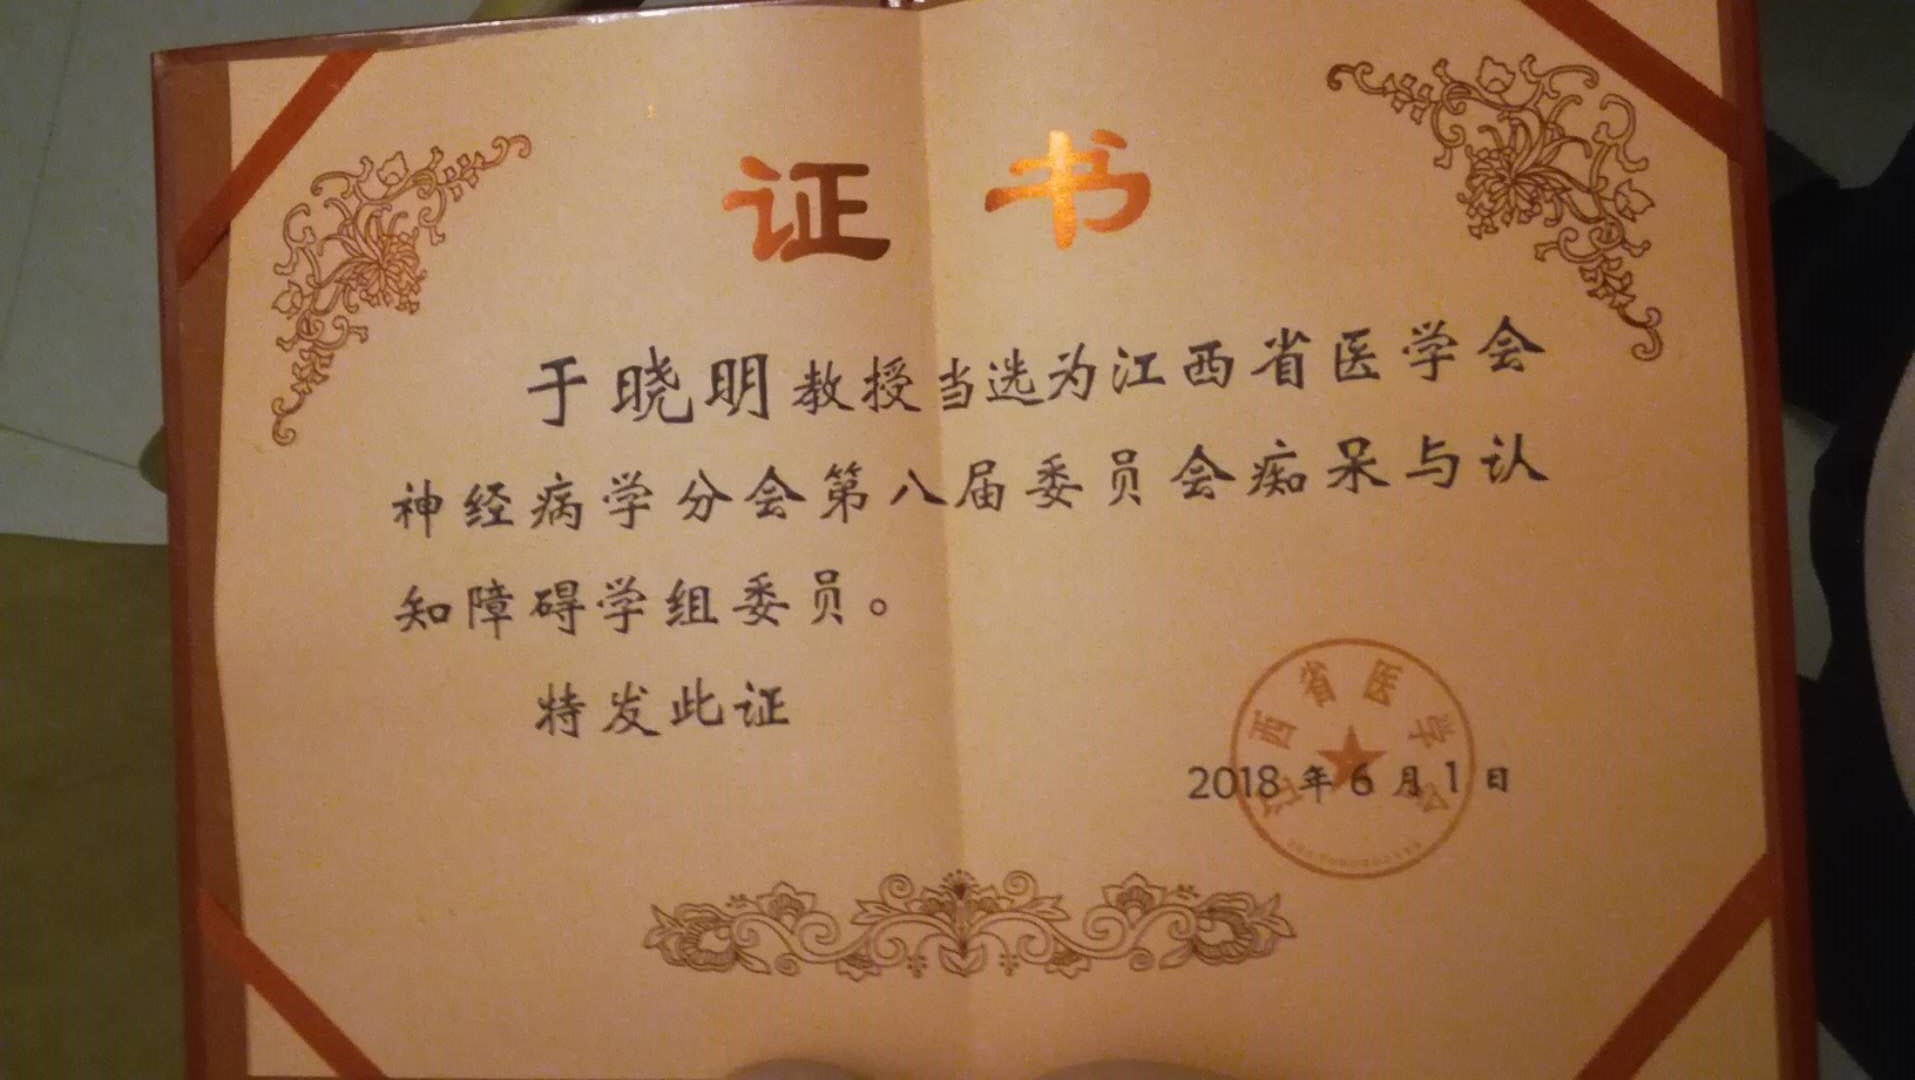 证书
于晓明教授当选为江西省医学会
神经病学分会第八届委员会痴呆与认
知障碍学组委员。
特发此证
江西省医学会
2018年6月1日